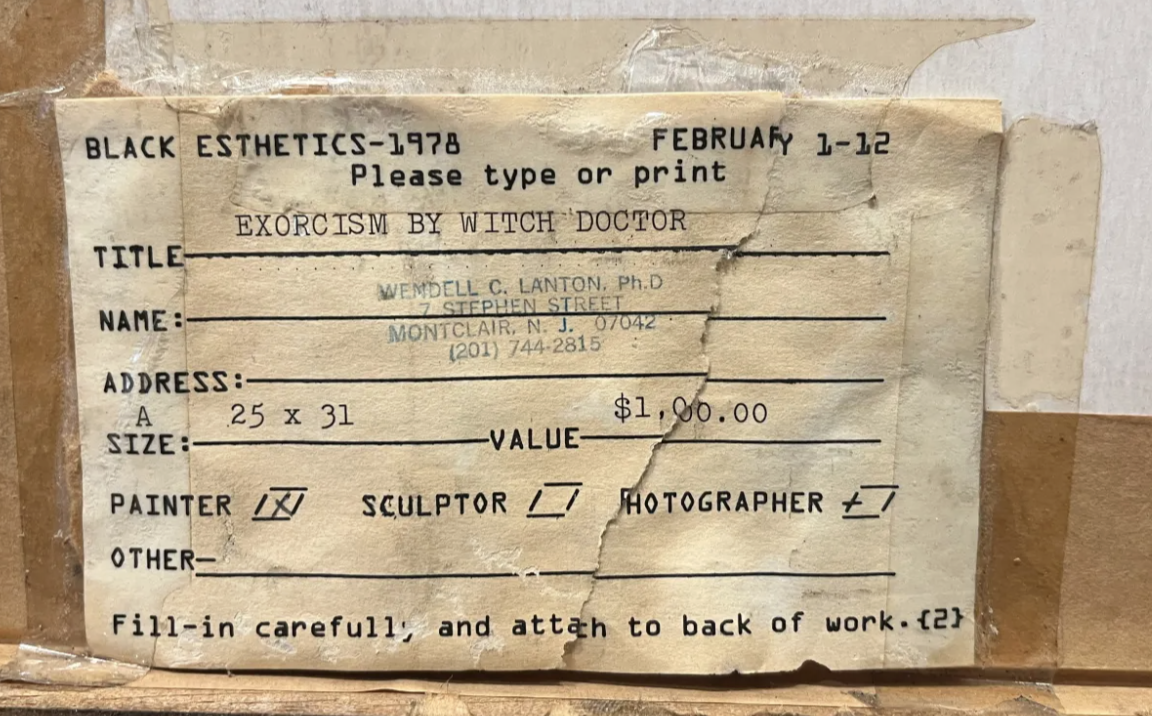 BLACK ESTHETICS-1978 FEBRUARY 1-12
Please type or print
EXORCISM BY WITCH DOCTOR
TITLE
WENDELL C. LANTON, Ph.D
7 STEPHEN STREET
NAME:
MONTCLAIR, N. J. 07042
(201) 744-2815
ADDRESS:
A 25 x 31 $1,000.00
SIZE: VALUE
PAINTER X SCULPTOR PHOTOGRAPHER
OTHER
Fill-in carefully and attach to back of work.{2}